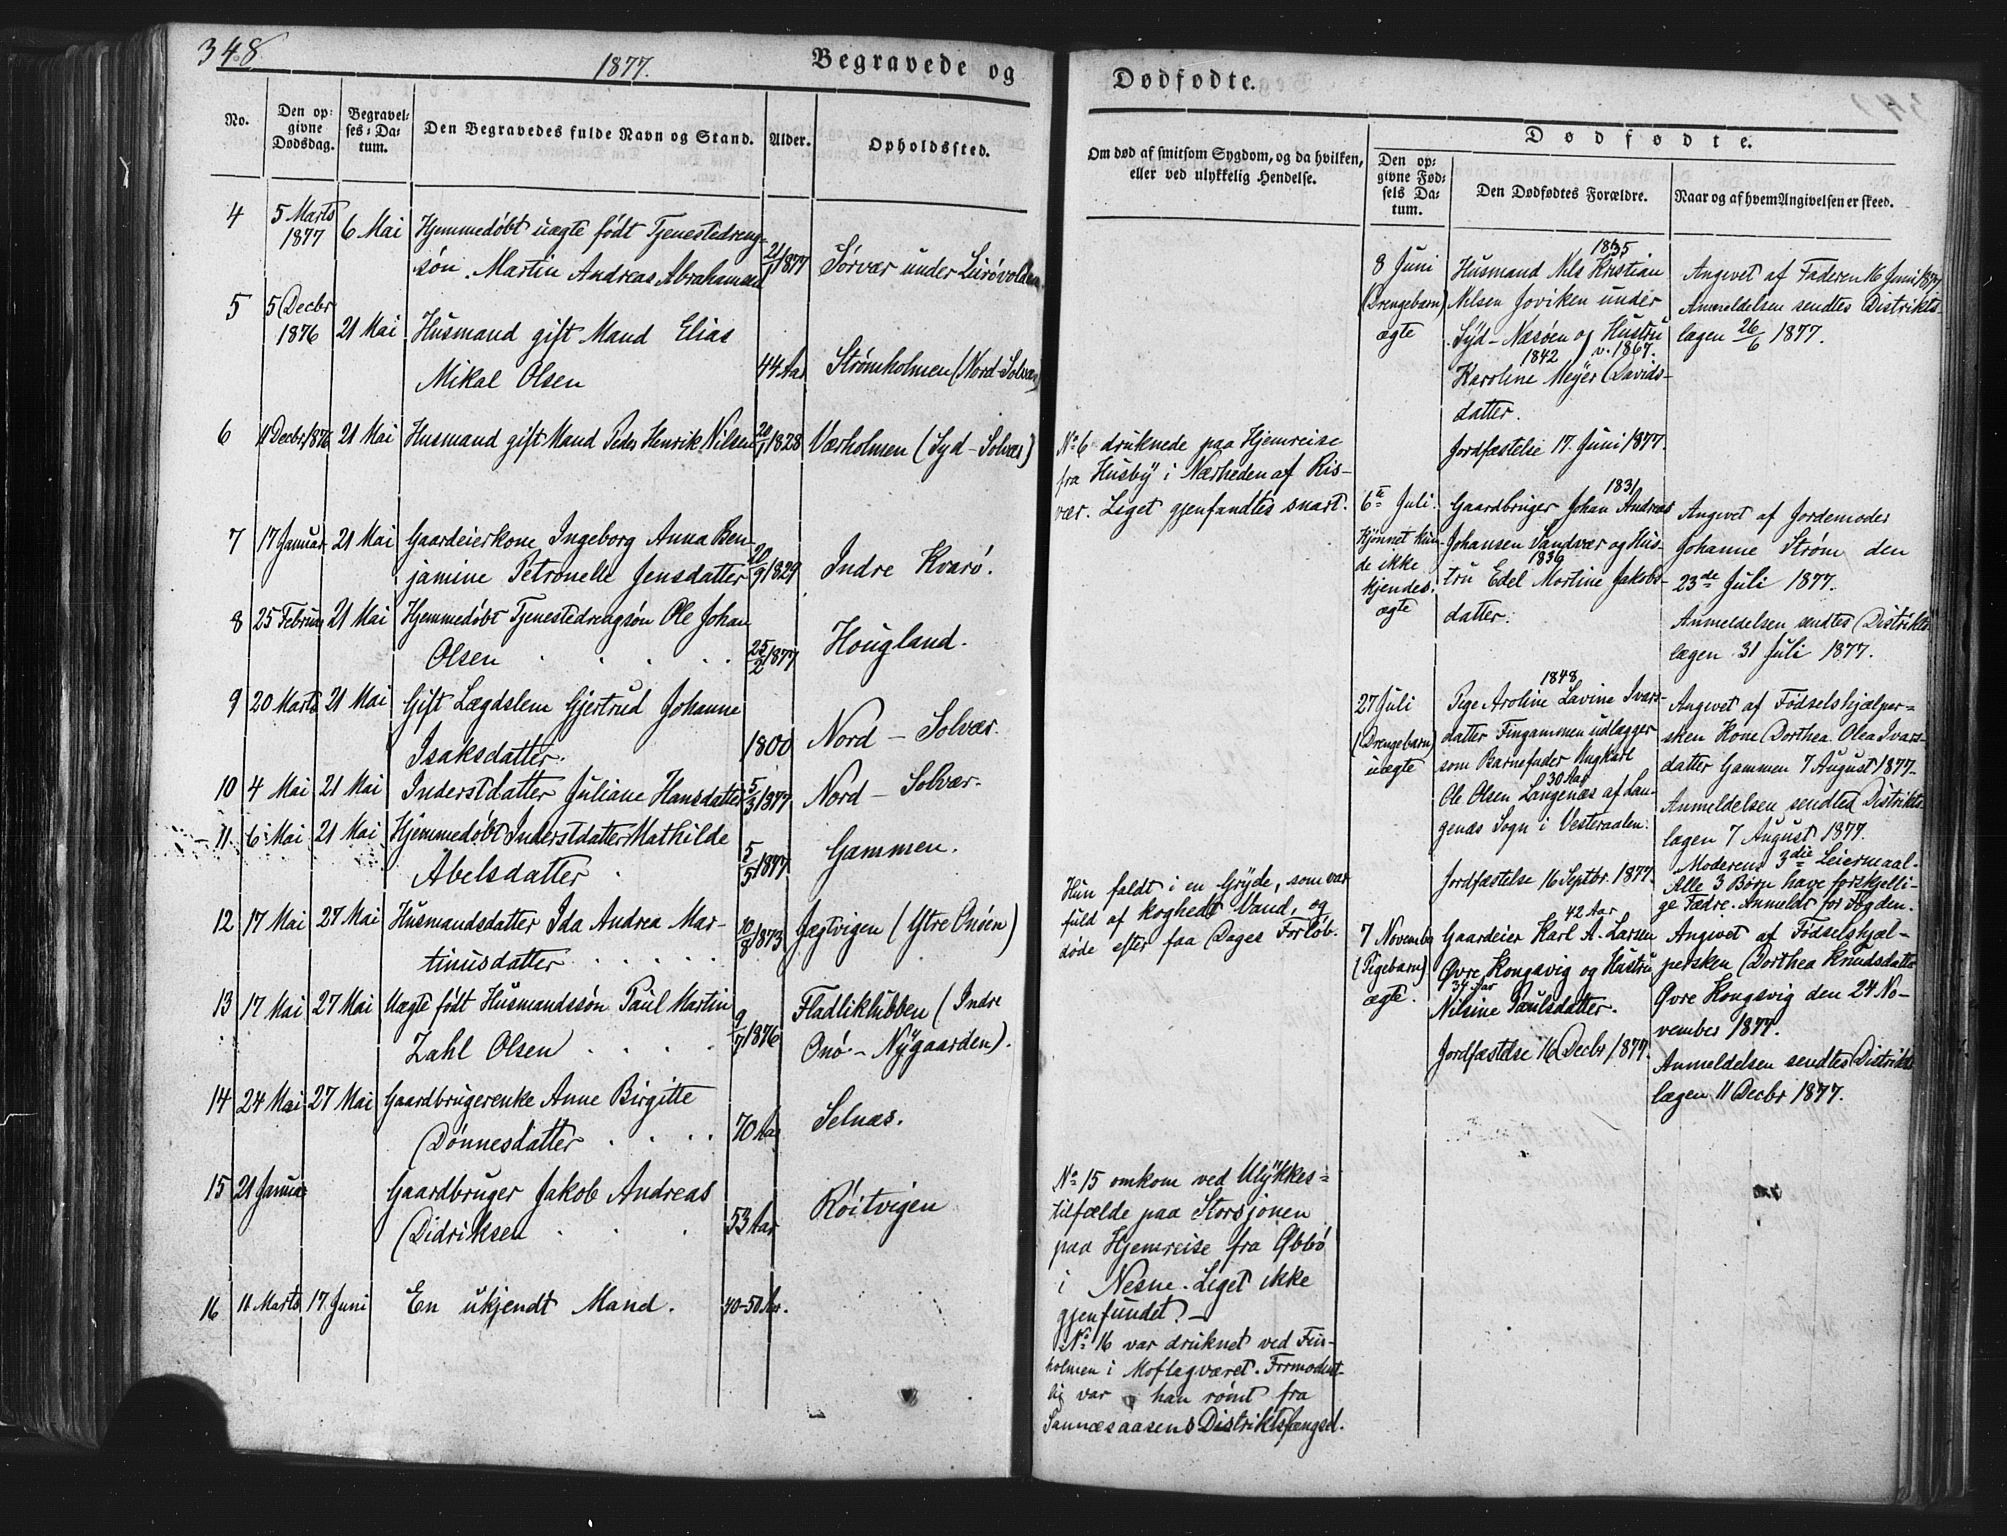 348.
1877.
Begravede og
No.
Den op-
givne
Dødsdag.
Begravel-
ses-Da-
tum.
Den Begravedes fulde Navn og Stand.
Alder.
Opholdssted.
4 5 Marts 1877 6 Mai Hjemmedøbt uægte født Tjenestedreng-
søn Martin Andreas Abrahamsen 21/1 1877 Sørvær under Lurøvolden
5 5 Decbr 1876 21 Mai Husmand gift Mand Elias
Mikal Olsen 44 Aar Strømholmen (Nord-Solvær)
6 11 Decbr 1876 21 Mai Husmand gift Mand Peder Henrik Nilsen 20/1 1828 Værholmen (Syd-Solvær)
7 17 Januar 21 Mai Gaardeierkone Ingeborg Anna Ben-
jamine Petronelle Jensdatter 20/9 1829 Indre Kvarø.
8 25 Februar 21 Mai Hjemmedøbt Tjenestedrengsøn Ole Johan
Olsen 25/2 1877 Hougland.
9 20 Marts 21 Mai Gift Lægdslem Gjertrud Johanne
Isaksdatter. 1800 Nord-Solvær.
10 4 Mai 21 Mai Inderstdatter Juliane Hansdatter 5/3 1877 Nord-Solvær.
11 6 Mai 21 Mai Hjemmedøbt Inderstdatter Mathilde
Abelsdatter 5/5 1877 Gammen.
12 17 Mai 27 Mai Husmandsdatter Ida Andrea Mar-
tinusdatter 10/8 1873 Jægtvigen (Ytre Onøen)
13 17 Mai 27 Mai Uægte født Husmandssøn Paul Martin
Zahl Olsen 9/7 1876 Fladliklubben (Indre
Onø-Nygaarden).
14 24 Mai 27 Mai Gaardbrugerenke Anne Birgitte
Dønnesdatter 70 Aar Selnæs.
15 21 Januar Gaardbruger Jakob Andreas
Didriksen 53 Aar Røitvigen
16 11 Marts 17 Juni En ukjendt Mand. 40-50 Aar.
Dødfødte.
Om død af smitsom Sygdom, og da hvilken,
eller ved ulykkelig Hendelse.
Dødfødte.
Den op-
givne Fød-
sels Da-
tum.
Den Dødfødtes Forældre.
Naar og af hvem Angivelsen er skeed.
No 6 druknede paa Hjemreise
fra Husby i Nærheden af Ris-
vær. Liget gjenfandtes snart.
Hun faldt i en Gryde, som var
fuld af koghedt Vand, og
døde efter faa Dages Forløb.
No 15 omkom ved Ulykkes-
tilfælde paa Storsjøen
paa Hjemreise fra
i Nesne. Liget ikke
gjenfundet.
No 16 var druknet ved
holmen i Moflagværet. Formodent-
lig var han rømt fra
Sannæsaasens Distriktsfængsel.
8 Juni
(Drengebarn)
ægte
1835
Husmand Nils Kristian
Nilsen Joviken under
Syd-Næsøen og Hustru
1842 v. 1867.
Karoline Meyer Davids-
datter.
Jordfæstelse 17. Juni 1877.
Angivet af Faderen 16 Juni 1877
Anmeldelsen sendtes Distrikts-
lægen 26/6 1877.
6te Juli.
Kjønnet kun-
de ikke
kjendes.
ægte
1831
Gaardbruger Johan Andreas
Johansen Sandvær og Hus-
1839
tru Edel Martine Jakobs-
datter.
Angivet af Jordemoder
Johanne Strøm den
23de Juli 1877.
Anmeldelsen sendtes Distrikts
lægen 31 Juli 1877.
27 Juli
(Drengebarn)
uægte
1848
Pige Aroline Lavine Ivars-
datter Fingammen udlægger
som Barnefader Ungkarl
30 Aar
Ole Olsen Langenæs af Lan-
genæs Sogn i Vesteraalen.
Jordfæstelse 16 Septbr. 1877.
Angivet af Fødselshjælper-
sken Kone Dorthea Olea Ivars-
datter Gammen 7 August 1877.
Anmeldelsen sendtes Distrikts
lægen 7 August 1877.
Moderens 3die Leiermaal.
Alle 3 Børn have forskjelli-
ge Fædre. Anmeldt for Fogden.
7 Novembr
(Pigebarn)
ægte.
42 Aar
Gaardeier Karl A. Larsen
Øvre Kongsvig og Hustru
34 Aar
Nilsine Paulsdatter.
Jordfæstelse 16 Decbr 1877.
Angivet af Fødselshjæl-
persken Dorthea Knudsdatter
Øvre Kongsvig den 24 No-
vember 1877.
Anmeldelsen sendtes Distrikts
lægen 11 Decbr 1877.